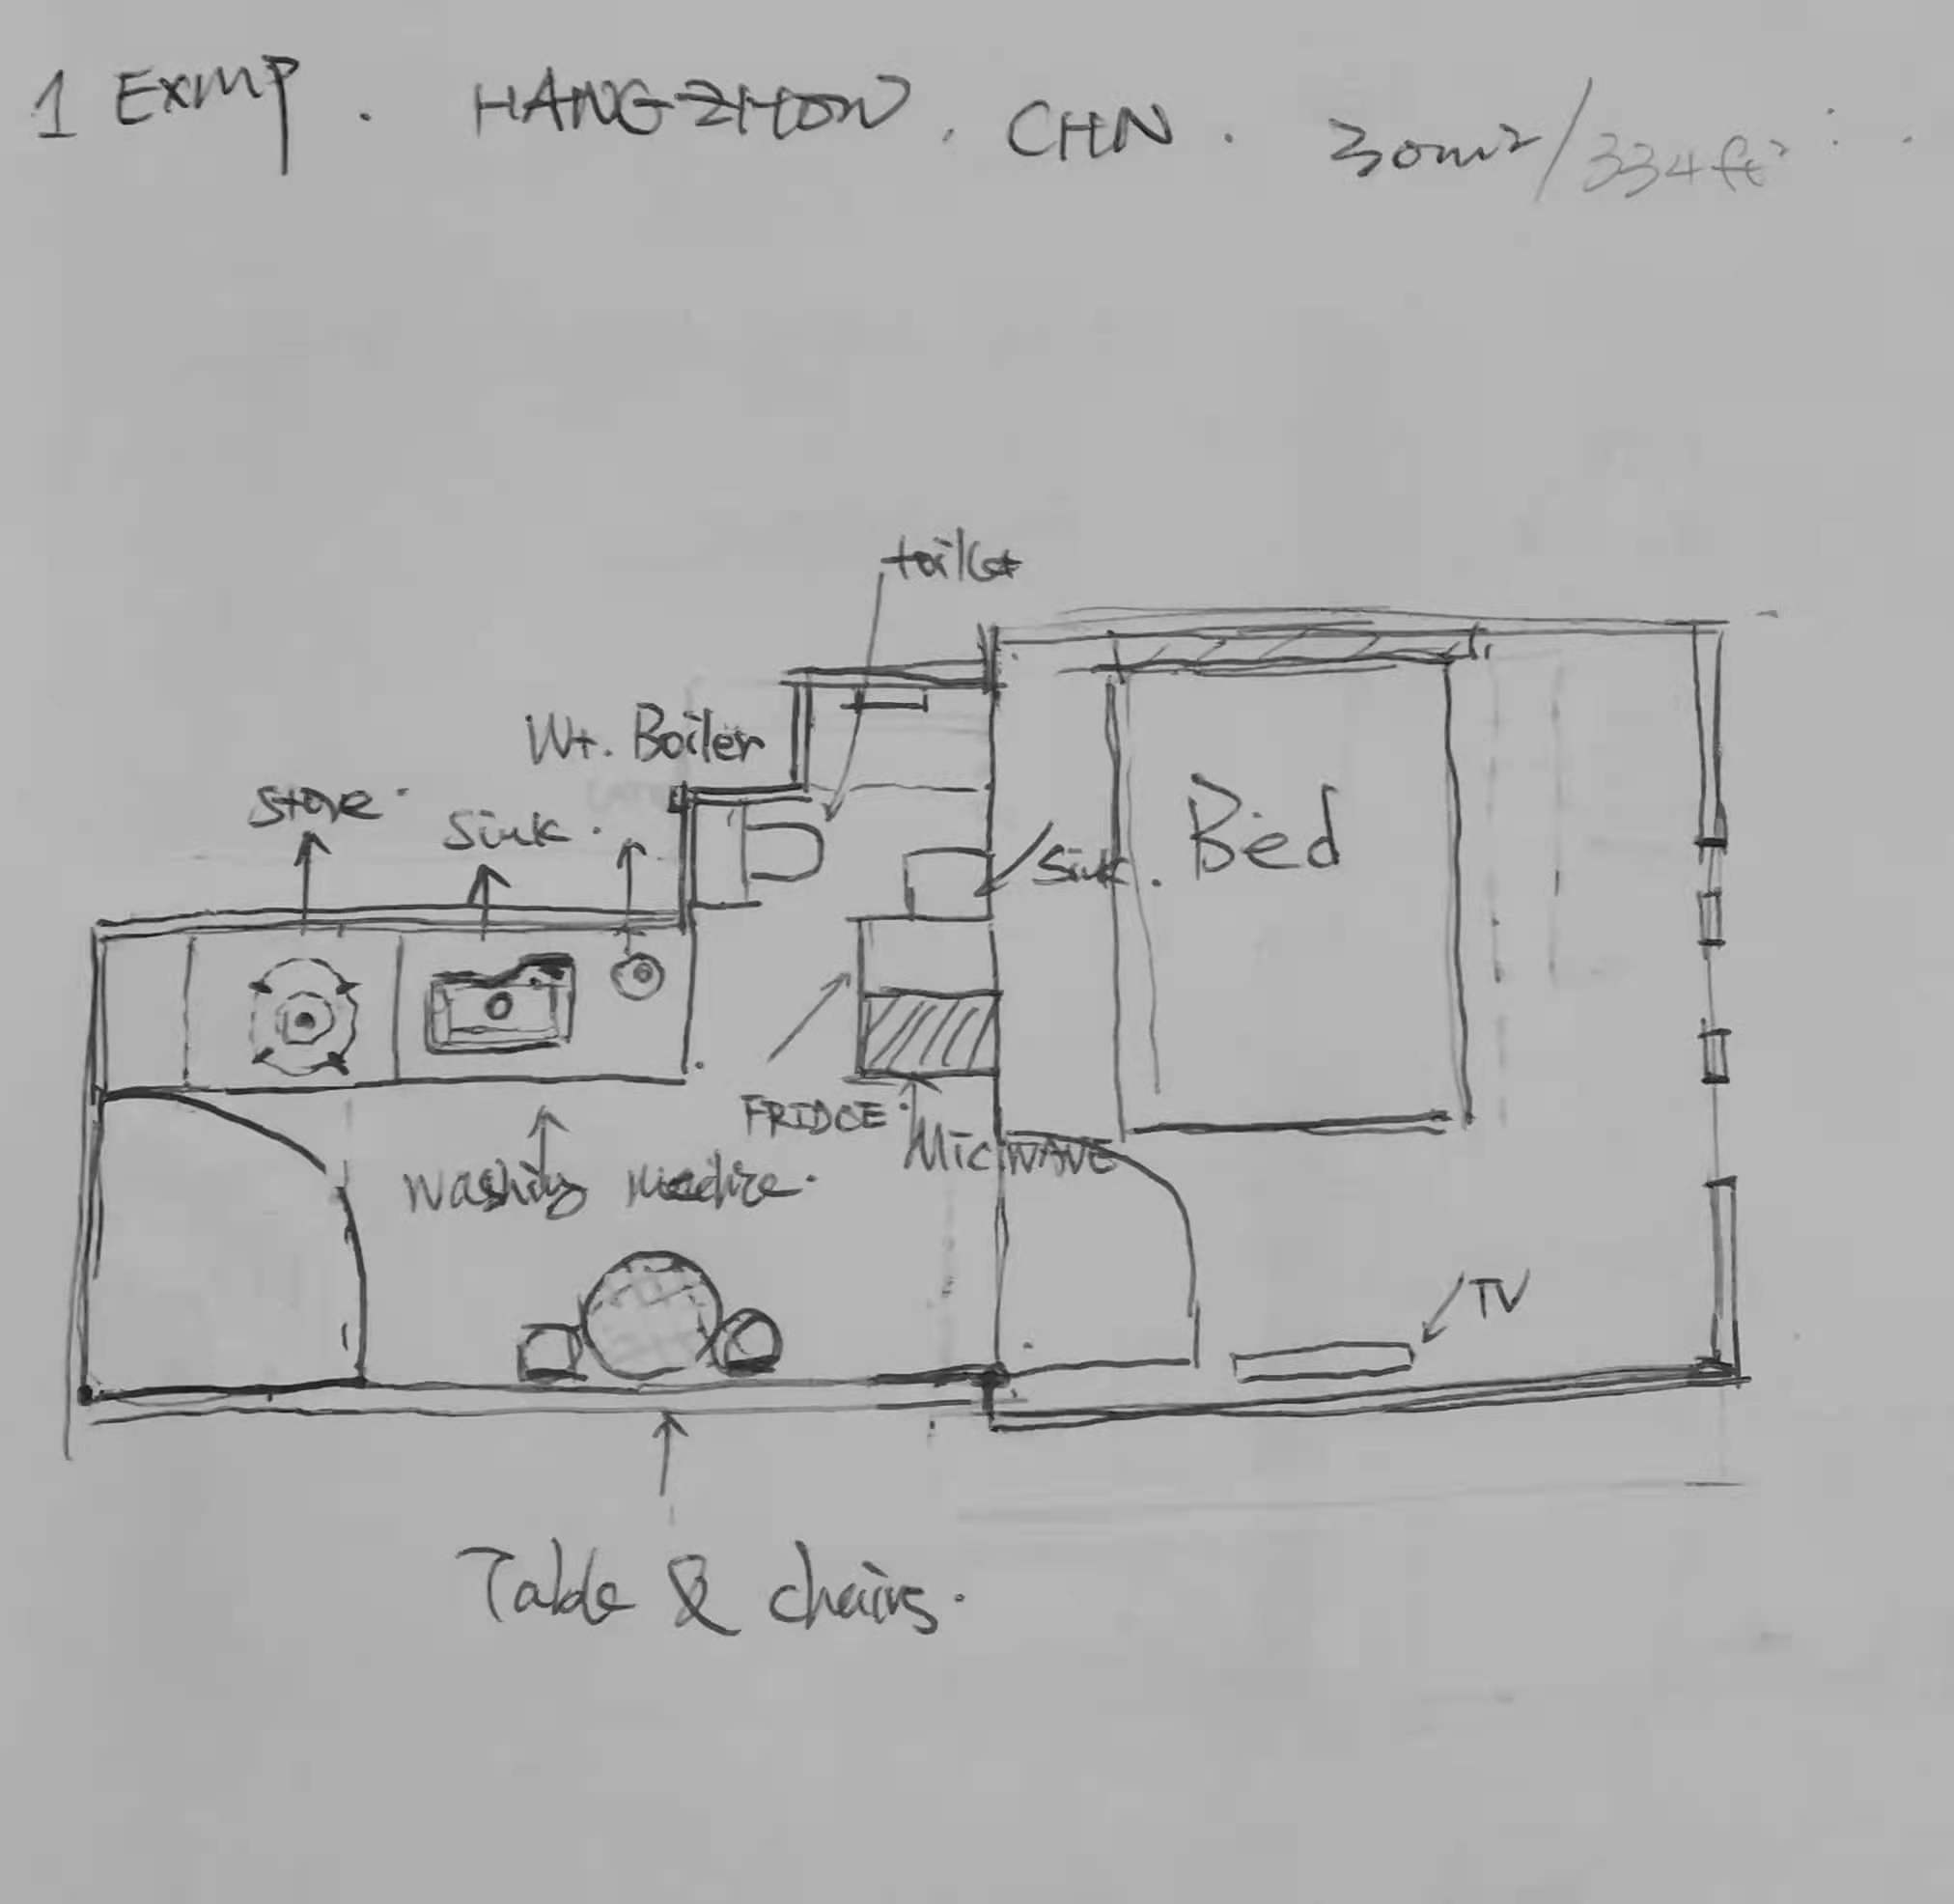 1 EXMP. HANGZHOU, CHN. 30m²/334ft²
toilet
Wt. Boiler
Stove.
Sink.
Sink.
Bed
FRIDGE.
MicWAVE
Washing machine.
TV
Table & chairs.